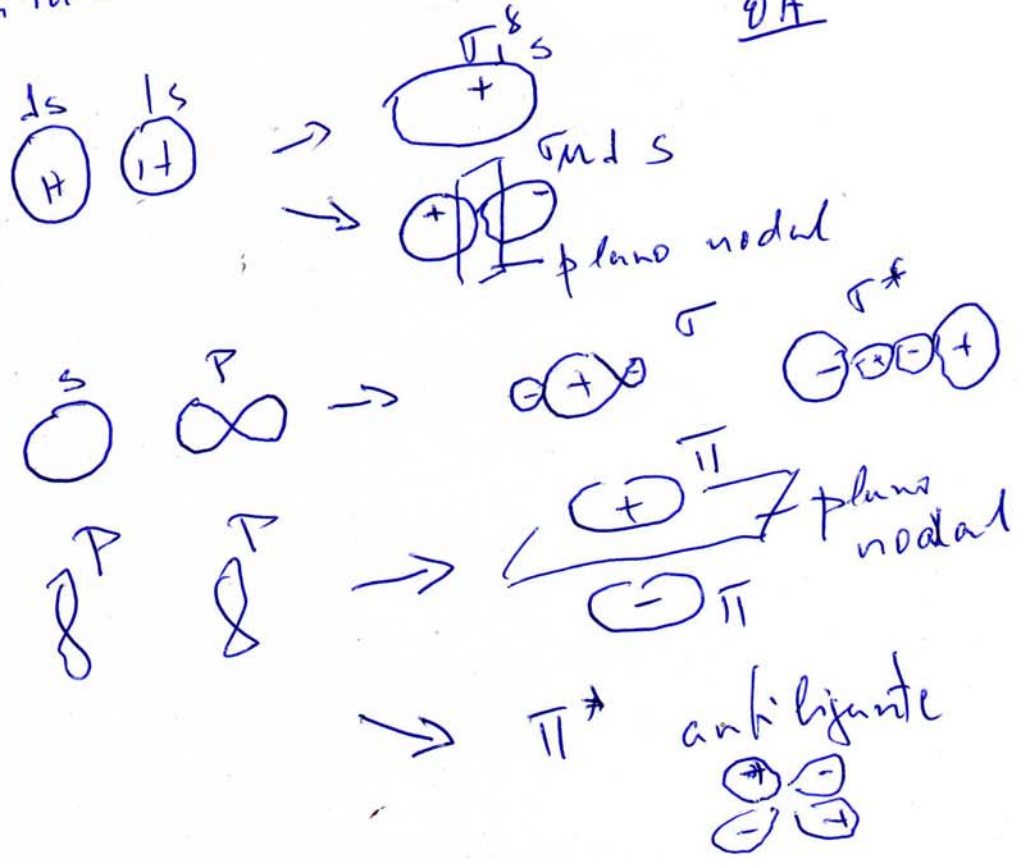 1s 1s → σ 1s
+ + +
→ σu 1s
+ -
plano nodal
s p → σ σ*
- + - - + - +
p p → π
+ plano
nodal
- π
→ π* antiligante
+ -
- +